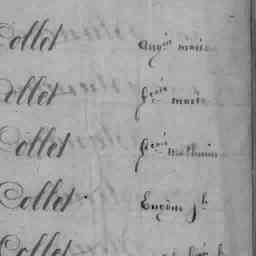 Collet Augin marie
Collet fçois marie
Collet fçois mathurin
Collet Eugène Jh
Collet